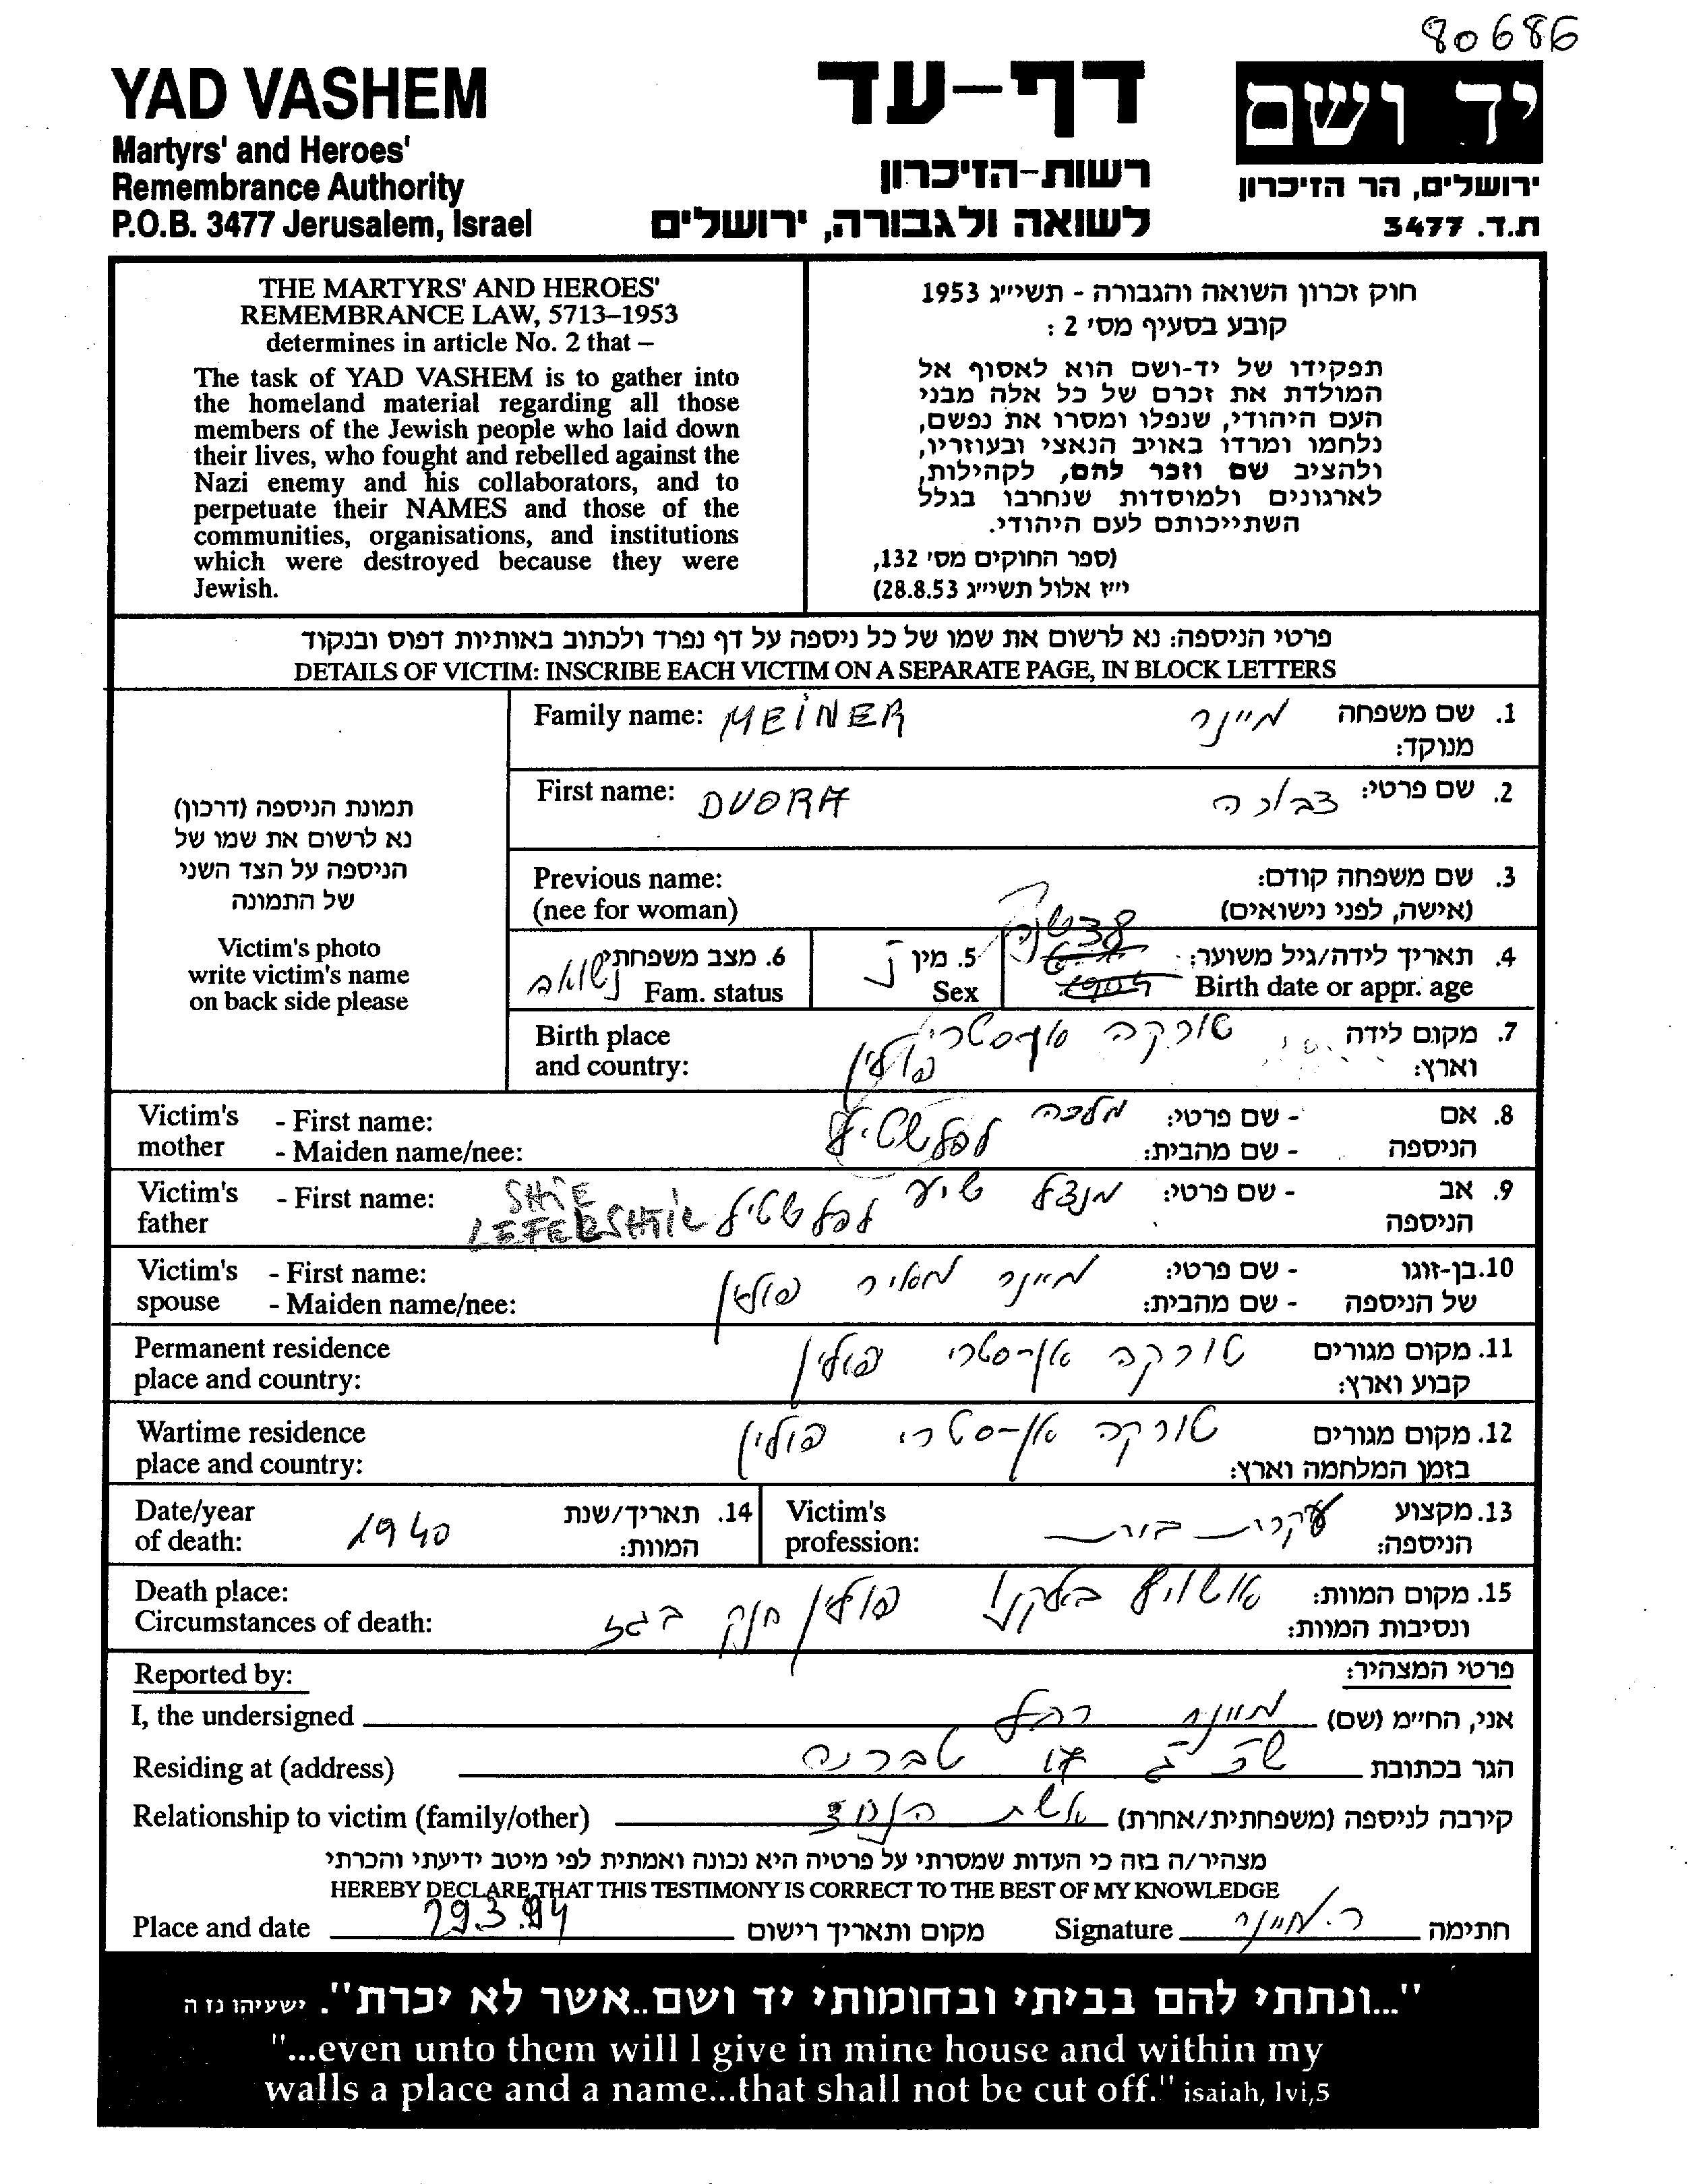 80686
YAD VASHEM
Martyrs' and Heroes'
Remembrance Authority
P.O.B. 3477 Jerusalem, Israel
דף-עד
רשות-הזיכרון
לשואה ולגבורה, ירושלים
יד ושם
ירושלים, הר הזיכרון
ת.ד. 3477
THE MARTYRS' AND HEROES'
REMEMBRANCE LAW, 5713–1953
determines in article No. 2 that –
The task of YAD VASHEM is to gather into
the homeland material regarding all those
members of the Jewish people who laid down
their lives, who fought and rebelled against the
Nazi enemy and his collaborators, and to
perpetuate their NAMES and those of the
communities, organisations, and institutions
which were destroyed because they were
Jewish.
חוק זכרון השואה והגבורה - תשי״ג 1953
קובע בסעיף מס' 2 :
תפקידו של יד-ושם הוא לאסוף אל
המולדת את זכרם של כל אלה מבני
העם היהודי, שנפלו ומסרו את נפשם,
נלחמו ומרדו באויב הנאצי ובעוזריו,
ולהציב שם וזכר להם, לקהילות,
לארגונים ולמוסדות שנחרבו בגלל
השתייכותם לעם היהודי.
(ספר החוקים מס' 132,
י״ז אלול תשי״ג 28.8.53)
פרטי הניספה: נא לרשום את שמו של כל ניספה על דף נפרד ולכתוב באותיות דפוס ובנקוד
DETAILS OF VICTIM: INSCRIBE EACH VICTIM ON A SEPARATE PAGE, IN BLOCK LETTERS
תמונת הניספה (דרכון)
נא לרשום את שמו של
הניספה על הצד השני
של התמונה
Victim's photo
write victim's name
on back side please
Family name: MEINER מיינר 1. שם משפחה
מנוקד:
First name: DVORA דבורה 2. שם פרטי:
Previous name: 3. שם משפחה קודם:
(nee for woman) (אישה, לפני נישואים)
6. מצב משפחתי נשואה 5. מין נ 38 שנה 4. תאריך לידה/גיל משוער:
Fam. status Sex Birth date or appr. age
Birth place טורקה 7. מקום לידה
and country: פולין וארץ:
Victim's - First name: מלכה - שם פרטי: 8. אם
mother - Maiden name/nee: - שם מהבית: הניספה
Victim's - First name: SHIE מנדל שיע - שם פרטי: 9. אב
father הניספה
Victim's - First name: מיינר מאיר פולין - שם פרטי: 10. בן-זוגו
spouse - Maiden name/nee: - שם מהבית: של הניספה
Permanent residence טורקה פולין 11. מקום מגורים
place and country: קבוע וארץ:
Wartime residence טורקה פולין 12. מקום מגורים
place and country: בזמן המלחמה וארץ:
Date/year 1940 14. תאריך/שנת Victim's עקרת בית 13. מקצוע
of death: המוות: profession: הניספה:
Death place: פולין חנק בגז 15. מקום המוות:
Circumstances of death: ונסיבות המוות:
Reported by: פרטי המצהיר:
I, the undersigned מיינר רחל אני, הח״מ (שם)
Residing at (address) טבריה הגר בכתובת
Relationship to victim (family/other) אשת קירבה לניספה (משפחתית/אחרת)
מצהיר/ה בזה כי העדות שמסרתי על פרטיה היא נכונה ואמתית לפי מיטב ידיעתי והכרתי
HEREBY DECLARE THAT THIS TESTIMONY IS CORRECT TO THE BEST OF MY KNOWLEDGE
Place and date 29.3.94 מקום ותאריך רישום Signature ר. מיינר חתימה
"...ונתתי להם בביתי ובחומותי יד ושם..אשר לא יכרת". ישעיהו נז ה
"...even unto them will I give in mine house and within my
walls a place and a name...that shall not be cut off." isaiah, lvi,5